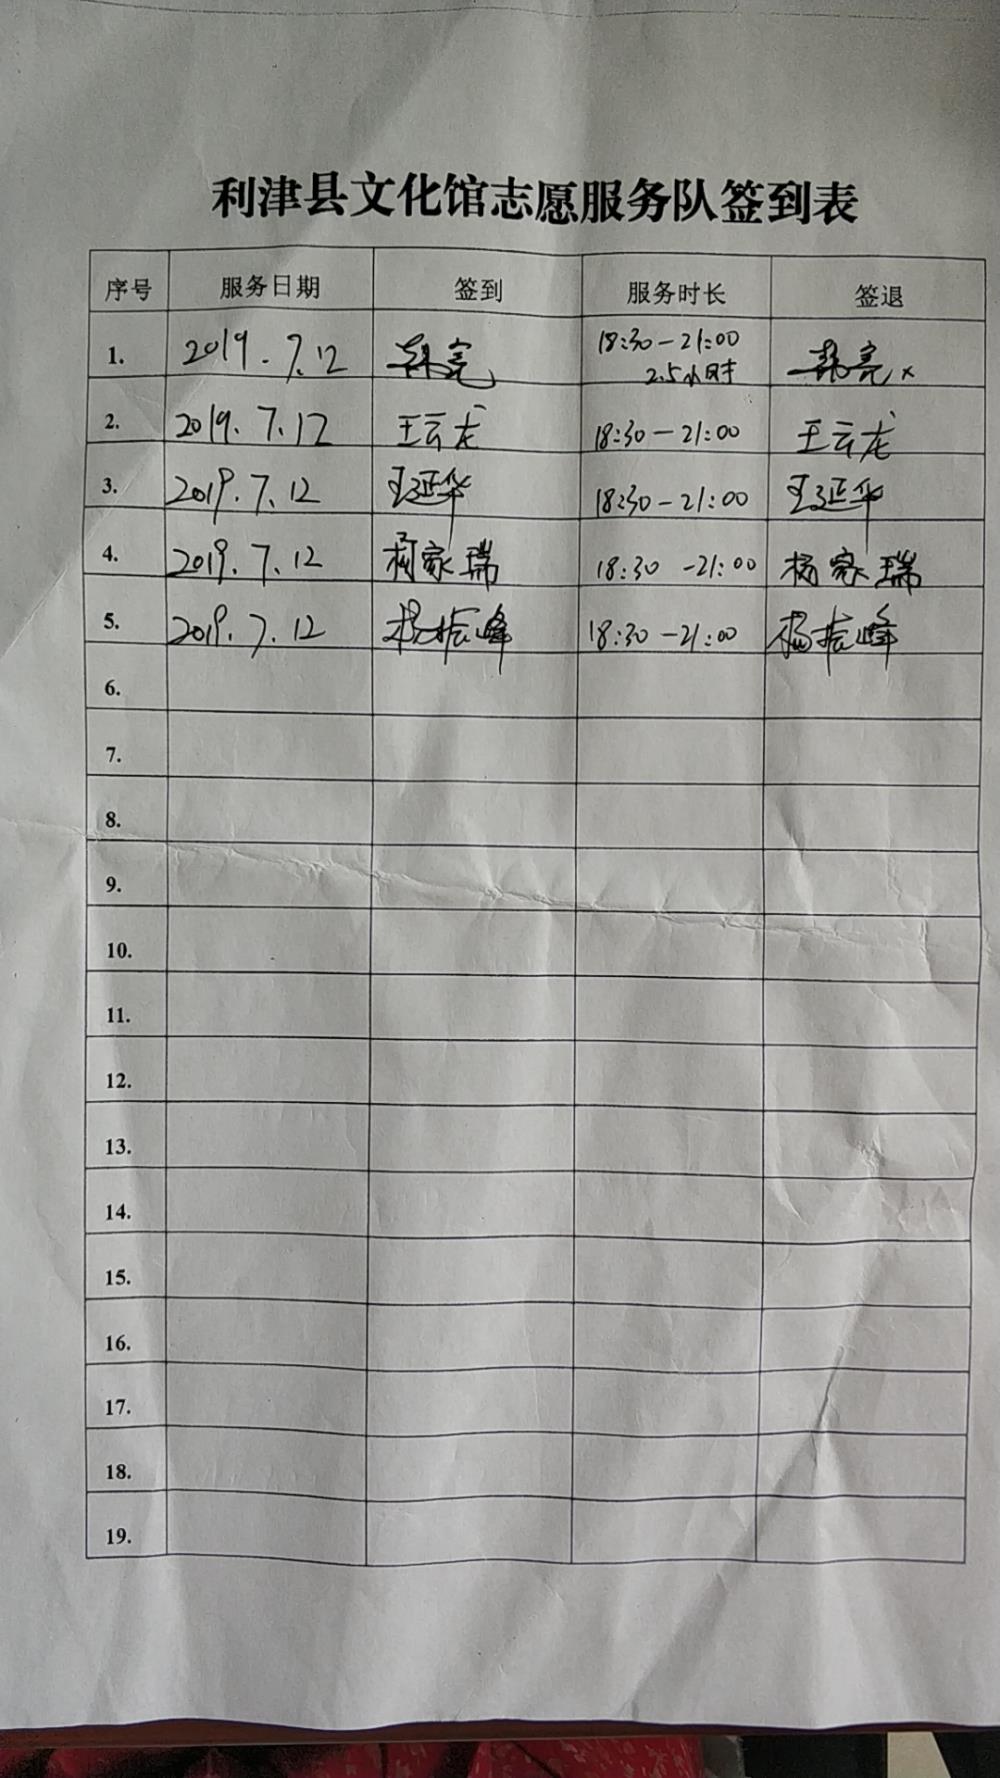 利津县文化馆志愿服务队签到表
序号 服务日期 签到 服务时长 签退
1. 2019.7.12 韩亮 18:30-21:00 2.5小时 韩亮
2. 2019.7.12 王云龙 18:30-21:00 王云龙
3. 2019.7.12 王延华 18:30-21:00 王延华
4. 2019.7.12 杨家瑞 18:30-21:00 杨家瑞
5. 2019.7.12 杨振峰 18:30-21:00 杨振峰
6.
7.
8.
9.
10.
11.
12.
13.
14.
15.
16.
17.
18.
19.